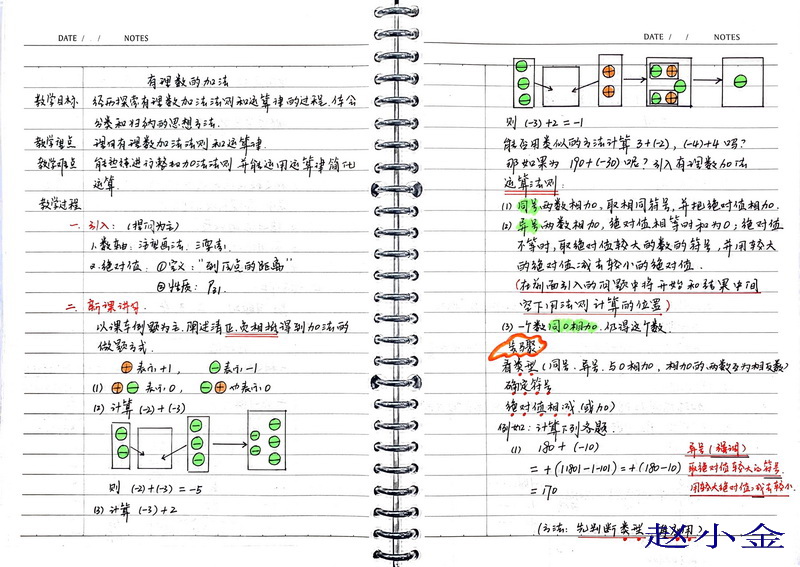 DATE / / NOTES
有理数的加法
教学目标 经历探索有理数加法法则和运算律的过程，体会
分类和归纳的思想方法.
教学重点 理解有理数加法法则和运算律.
教学难点 能熟练进行整数加法法则并能运用运算律简化
运算.
教学过程
一. 引入：(提问为主)
1. 数轴：注意画法. 三要素.
2. 绝对值： ①定义："到原点的距离"
②性质：
二. 新课讲解.
以课本例题为主，阐述清正、负相抵得到加法的
做题方式.
⊕表示+1， ⊖表示-1
(1) ⊕⊖表示0， ⊖⊕也表示0
(2) 计算 (-2)+(-3)
则 (-2)+(-3) = -5
(3) 计算 (-3)+2
DATE / / NOTES
则 (-3)+2 = -1
能否用类似的方法计算 3+(-2)，(-4)+4 吗？
那如果为 190+(-30) 呢？引入有理数加法
运算法则：
(1) 同号两数相加，取相同符号，并把绝对值相加.
(2) 异号两数相加，绝对值相等时和为0；绝对值
不等时，取绝对值较大的数的符号，并用较大
的绝对值减去较小的绝对值.
(在前面引入的问题中将开始和结果中间
空下用法则计算的位置)
(3) 一个数同0相加，仍得这个数.
步骤：
看类型 (同号、异号、与0相加，相加的两数互为相反数)
确定符号
绝对值相减 (或加)
例如2：计算下列各题.
(1) 180 + (-10) 异号 (强调)
= +(|180|-|-10|) = +(180-10) 取绝对值较大的符号.
= 170 用较大绝对值，减去较小.
(方法：先判断类型
赵小金